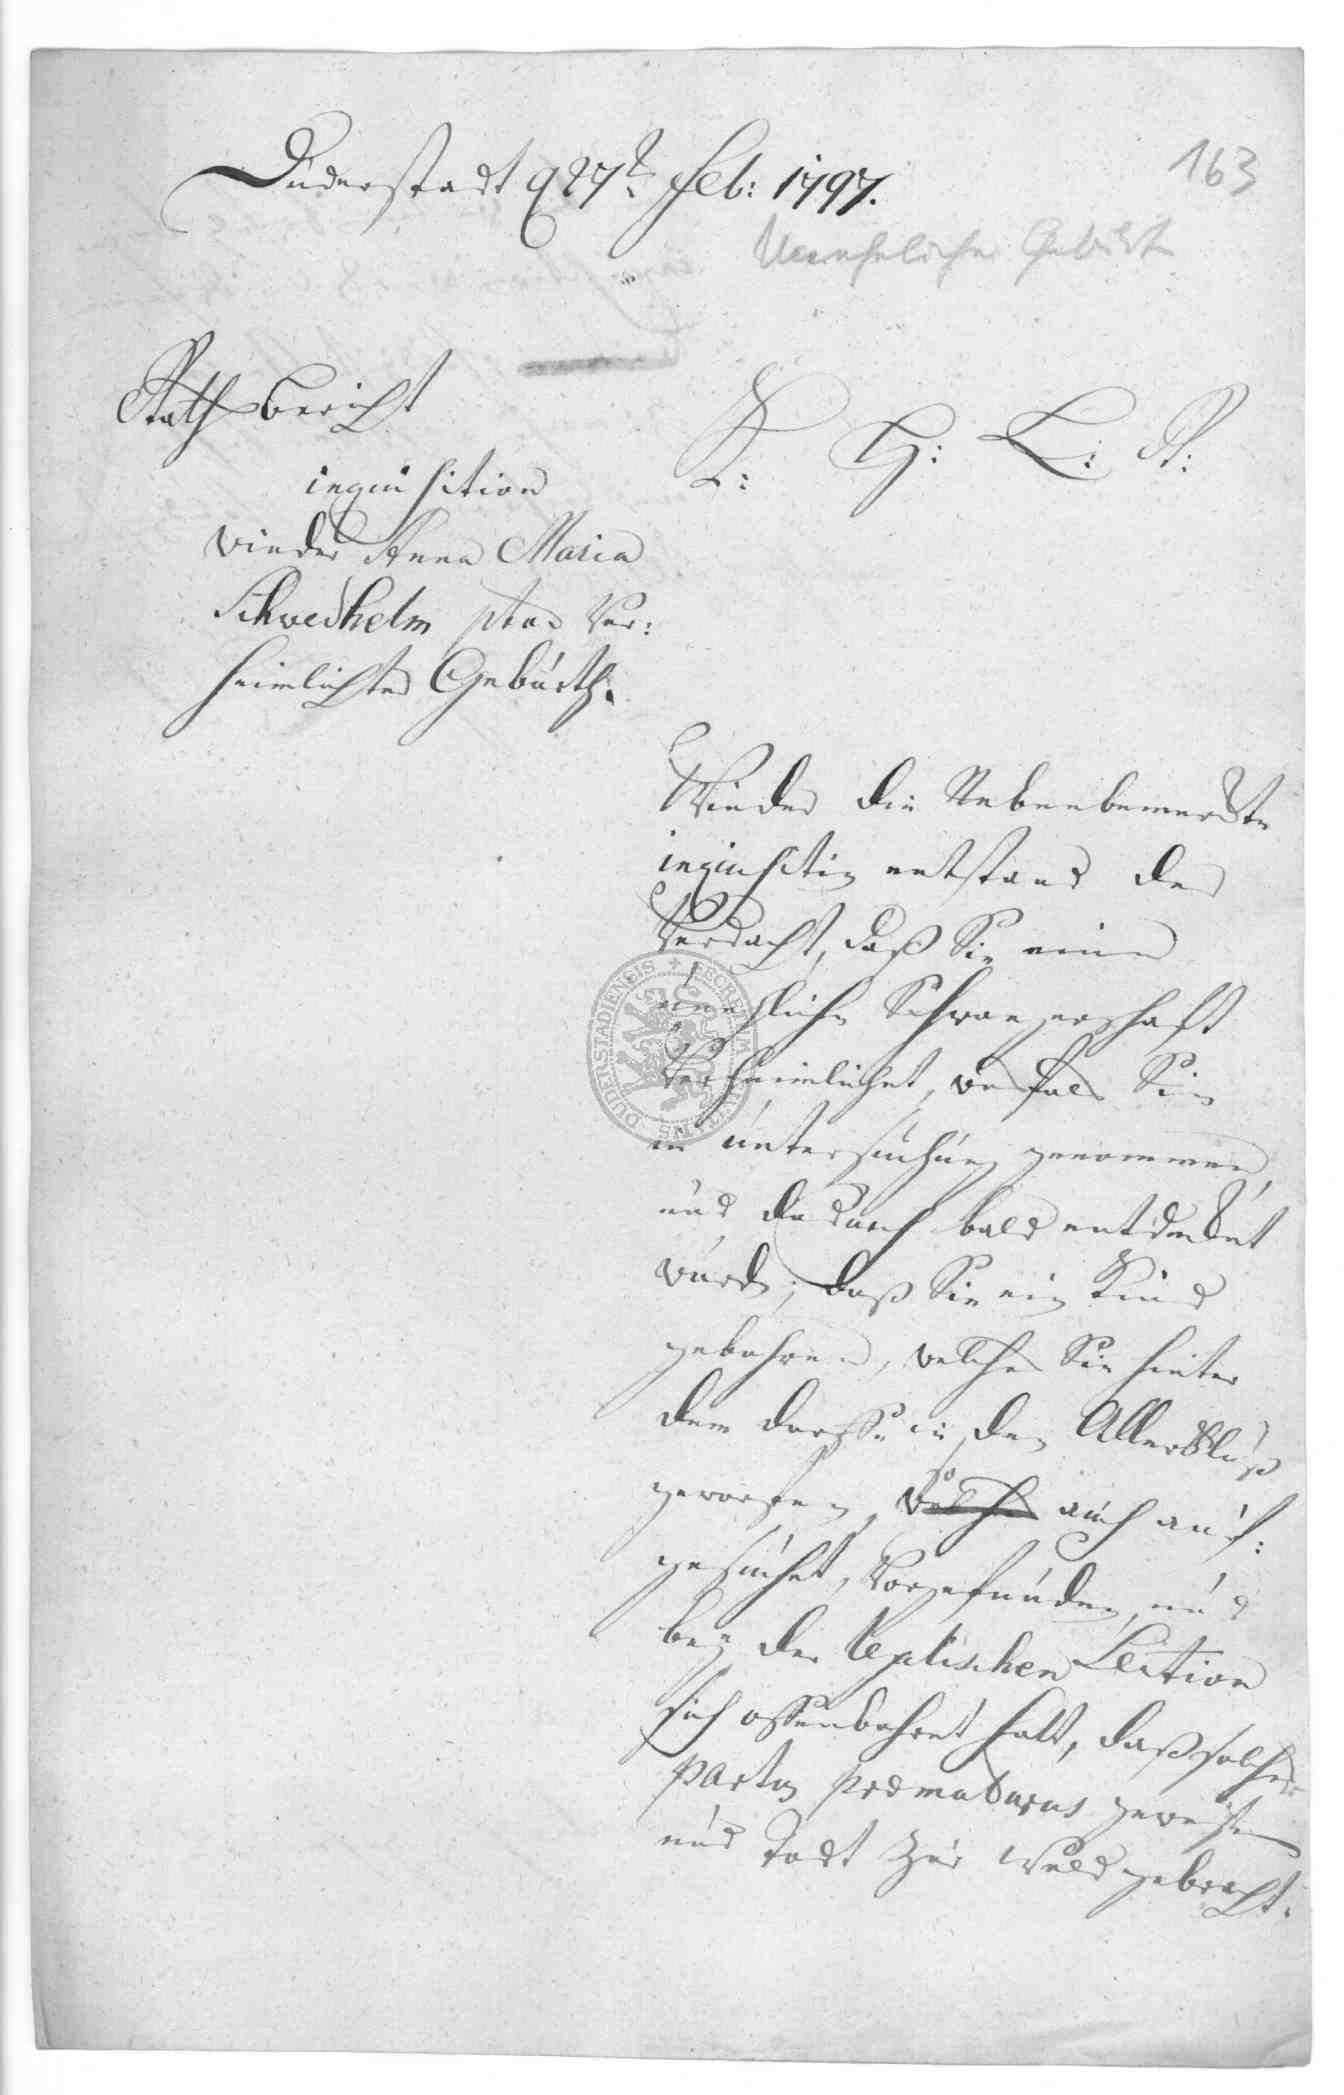 163
Duderstadt d 27t Feb: 1797.
Uneheliche Geburt
Rathsbericht
inquisition
wieder Anna Maria
Schwedhelm pto Ver:
heimlichter Gebürth.
K: H: L: R:
Wieder die Nebenbemerckte
inquisitin entstand der
Verdacht, daß Sie eine
uneheliche Schwangerschaft
Verheimlichet, weshalb Sie
in untersuchung genommen,
und dadurch bald entdecket
wurde, daß Sie ein Kind
gebohren, welches Sie hinter
dem Dorffe in den Allerfluß
geworfen, so auch auf:
gesuchet, Vorgefunden, und
bey der legalischen Section
sich offenbahret hatt, daß solches
partus praematurus gewesen
und Todt zur Weld gebracht.
SECRETUM CIVITATIS DUDERSTADIENSIS